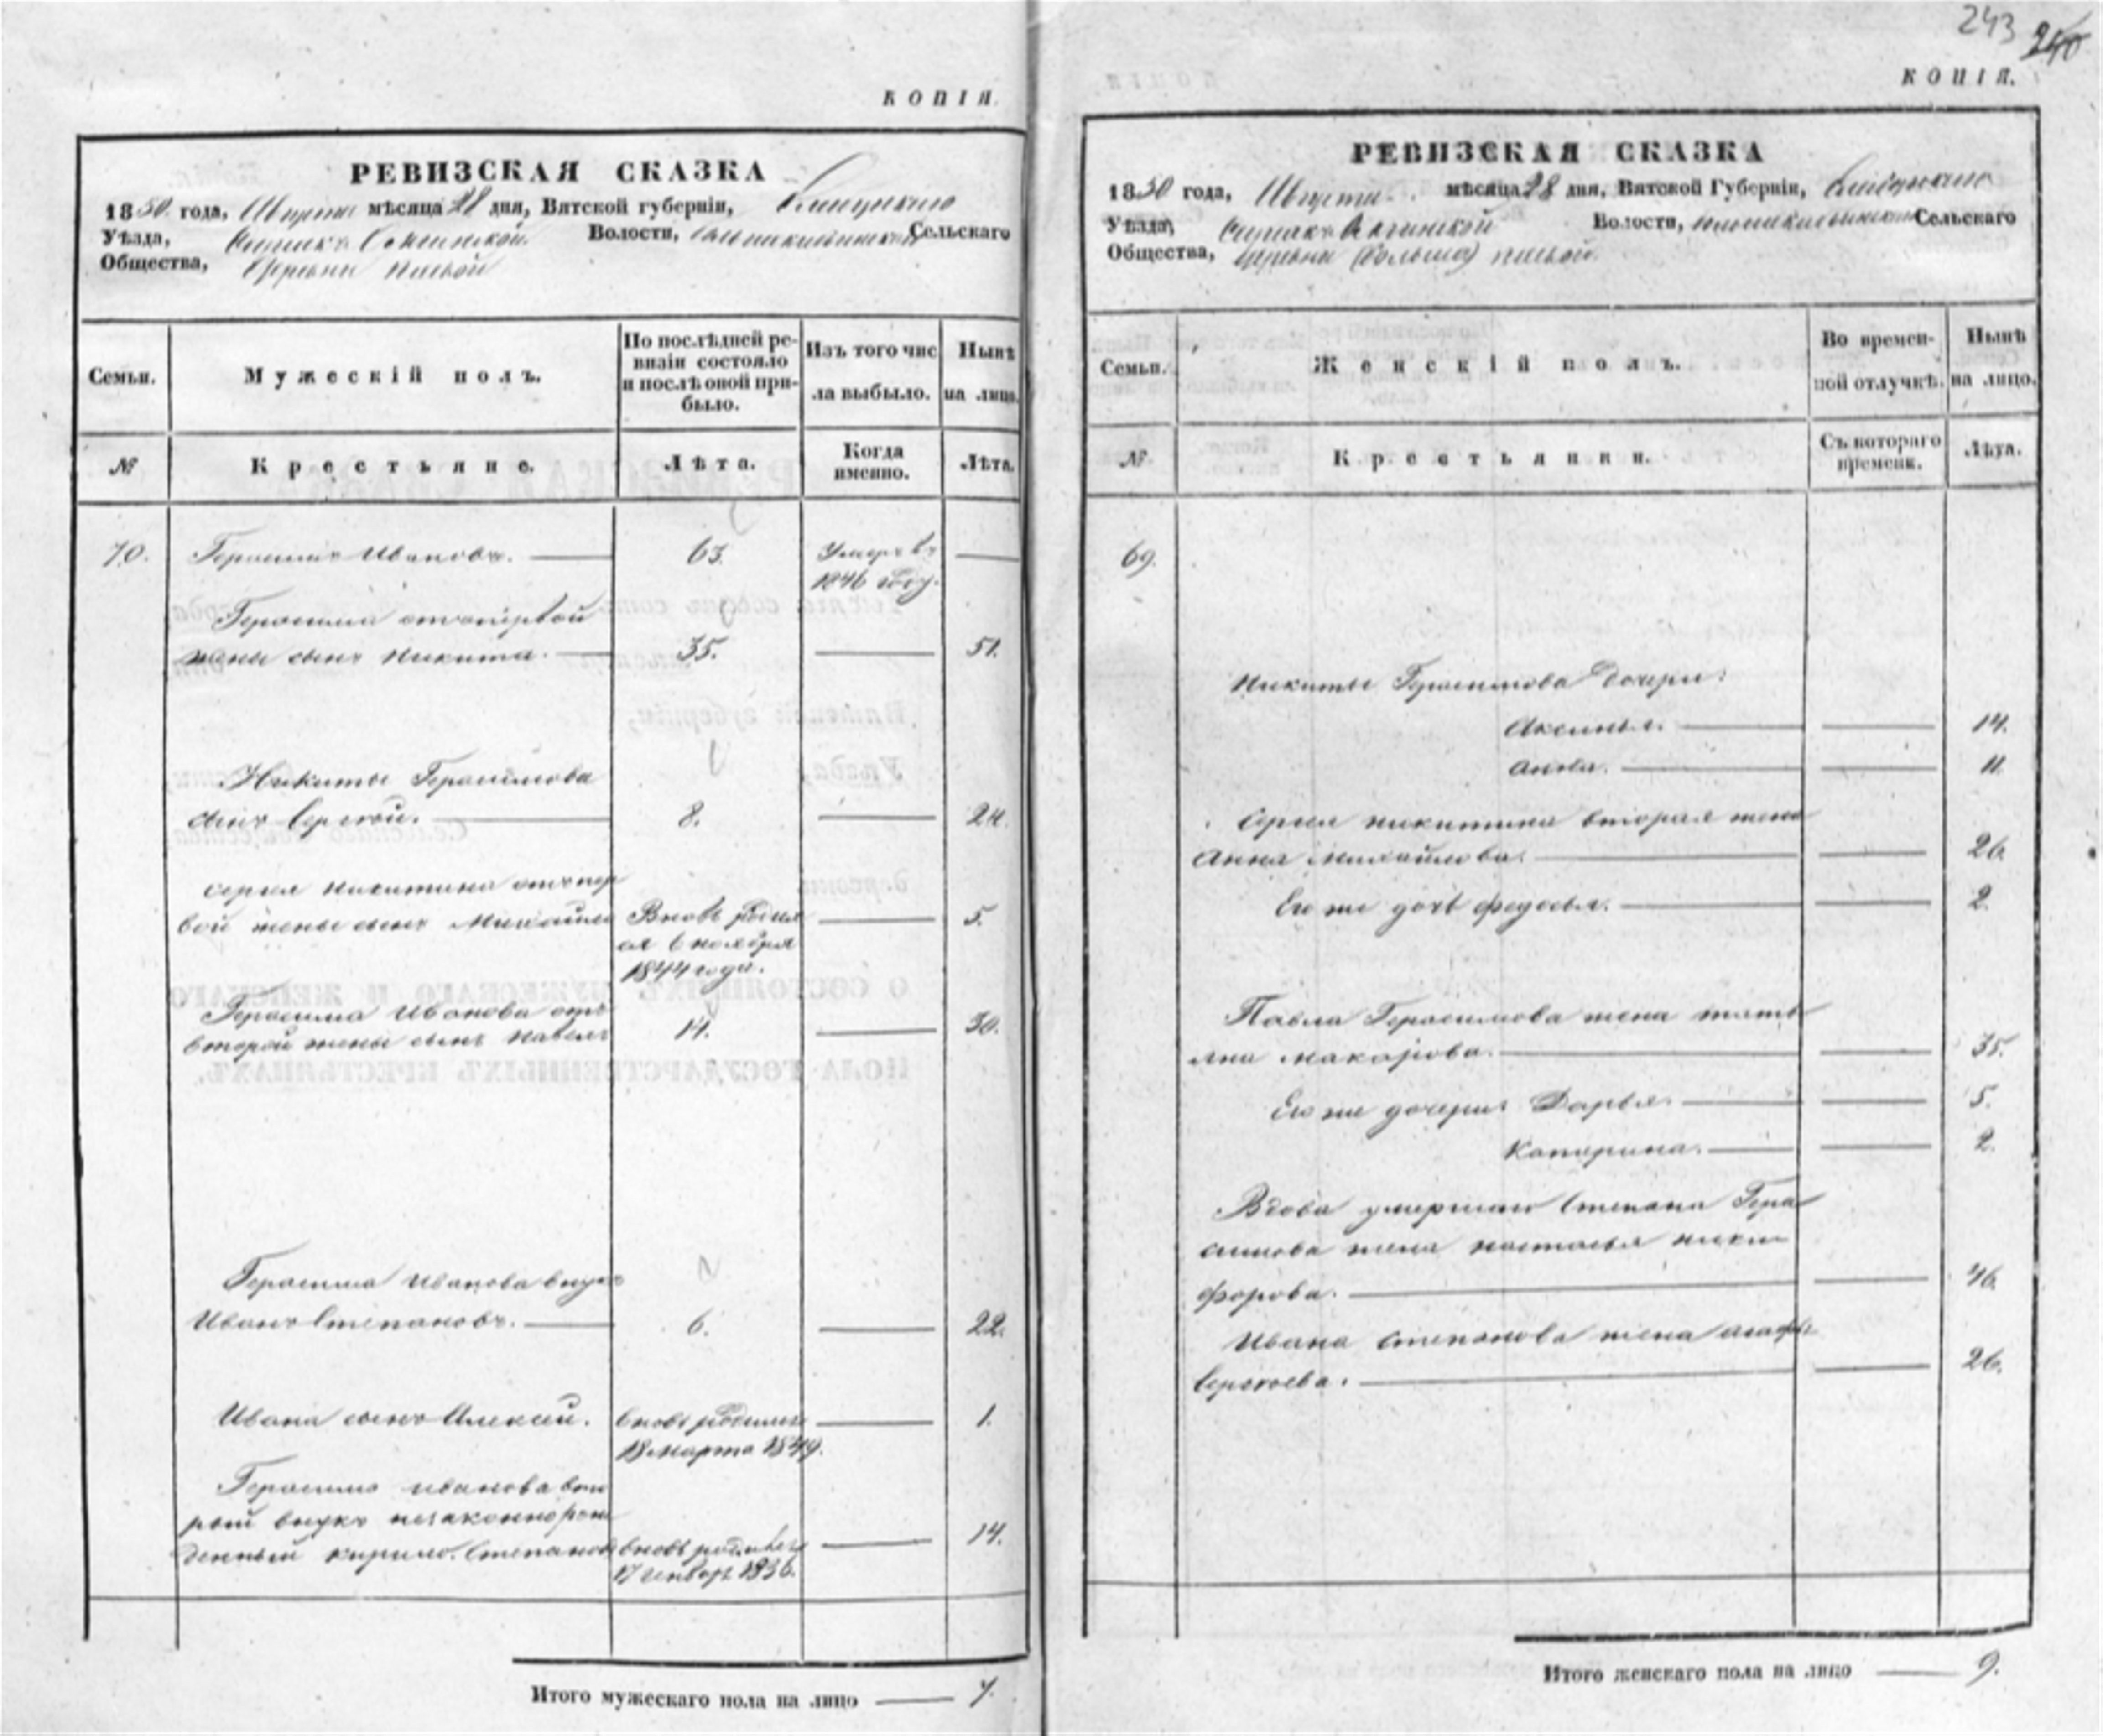 КОПІЯ.
РЕВИЗСКАЯ СКАЗКА
1850 года, Августа мѣсяца 28 дня, Вятской губерніи,
Уѣзда, Волости, Сельскаго
Общества, Деревни
Семьи. Мужескій полъ. По послѣдней ре- Изъ того чис Нынѣ
визіи состояло
и послѣ оной при- ла выбыло. на лицо.
было.
№ Крестьяне. Лѣта. Когда Лѣта.
именно.
70. Герасимъ Ивановъ. 63. Умеръ въ
1846 году.
Герасима отъ первой
жены сынъ Никита. 35. 51.
Никиты Герасимова
сынъ Сергѣй. 8. 24.
Сергея Никитина отъ пер
вой жены сынъ Михайло Вновь родил 5.
ся 6 ноября
1844 года.
Герасима Иванова отъ
второй жены сынъ Павелъ 14. 30.
Герасима Иванова внукъ
Иванъ Степановъ. 6. 22.
Ивана сынъ Алексей. вновь родился 1.
18 марта 1849.
Герасима Иванова вто
рый внукъ незаконнорож
денный Кирило Степановъ вновь родился 14.
17 генвар 1836.
Итого мужескаго пола на лицо 7.
243 240
КОПІЯ.
РЕВИЗСКАЯ СКАЗКА
1850 года, Августа мѣсяца 28 дня, Вятской Губерніи,
Уѣзда, Волости, Сельскаго
Общества, деревни
Семьи. Женскій полъ. Во времен- Нынѣ
ной отлучкѣ. на лицо.
№. Крестьянки. Съ котораго Лѣта.
времени.
69.
Никиты Герасимова дочери:
Аксинья. 14.
Анна. 11.
Сергея Никитина вторая жена
Анна Михайлова. 26.
Его же дочь Федосья. 2.
Павла Герасимова жена Тать
яна Макарова. 35.
Его же дочери: Дарья. 5.
Катерина. 2.
Вдова умершаго Степана Гера
симова жена Настасья Ники
форова. 46.
Ивана Степанова жена Агафья
Сергеева. 26.
Итого женскаго пола на лицо 9.